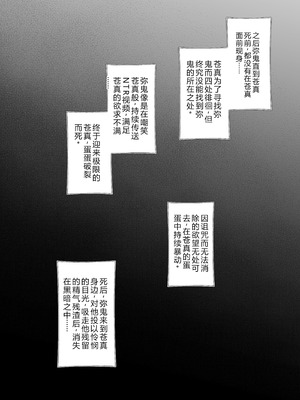 之后弥鬼直到苍真
死前，都没有在苍真
面前现身……
苍真为了寻找弥
鬼而四处徘徊，但
终究没能找到弥
鬼的所在之处。
弥鬼像是在嘲笑
苍真般，持续传送
NTR视频，满足
苍真的欲求不满
终于迎来极限的
苍真，蛋蛋破裂
而死。
因诅咒而无法消
除的欲望无处可
去，在苍真的蛋
蛋中持续暴动。
死后，弥鬼来到苍真
身边，对他投以怜悯
的目光，吸走他残留
的精气残渣后，消失
在黑暗之中……